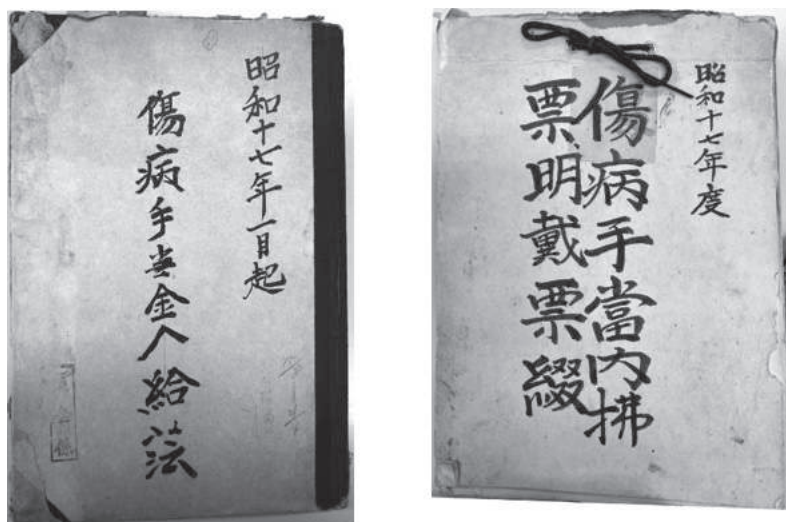 昭和十七年一月起
傷病手当金人給法
昭和十七年度
傷病手當内拂
票明戴票綴